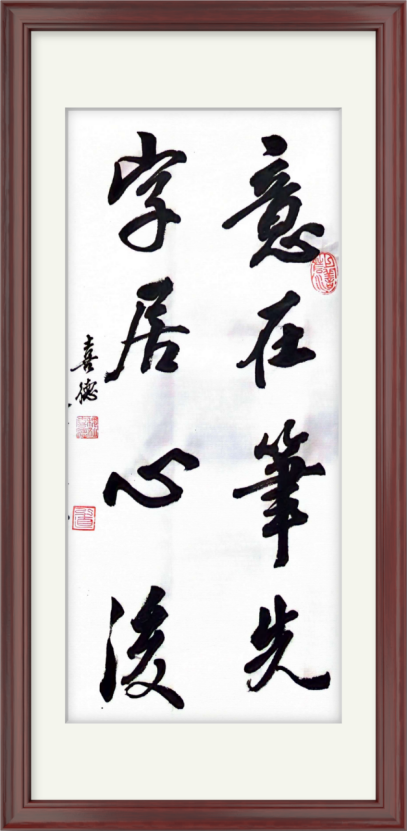 意在筆先
字居心後
喜德